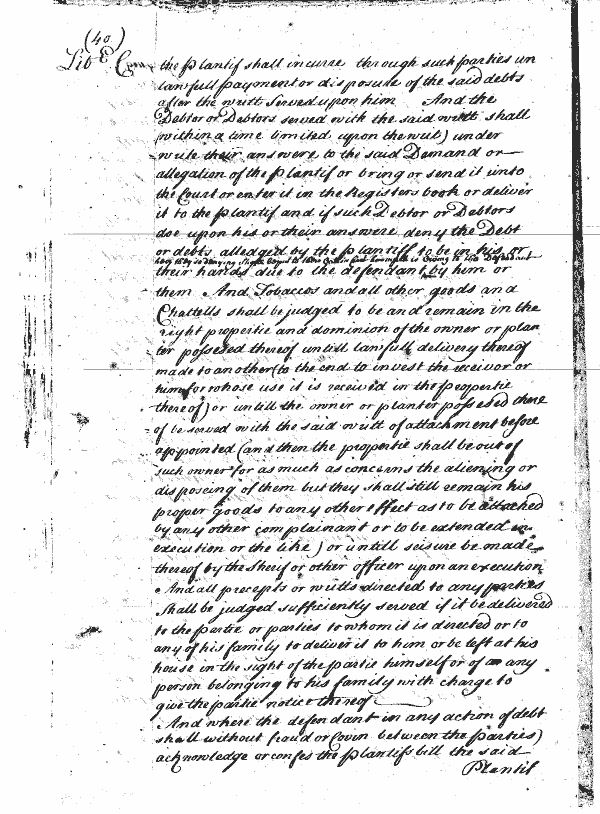 (40)
Lib E Com
the Plantif shall incurre through such parties un
lawfull payment or disposure of the said debts
after the writt served upon him And the
Debtor or Debtors served with the said writt shall
(within a time limited upon the writ) under
write their answere to the said Demand or
allegation of the Plantif or bring or send it into
the Court or enter it in the Registers book or deliver
it to the plantif and if such Debtor or Debtors
doe upon his or their answere deny the Debt
or debts alledged by the plantiff to be in his or
is owing to the Defendant
their hands due to the defendant by him or
them And Tobaccos and all other goods and
Chattells shall be judged to be and remain in the
right propertie and dominion of the owner or plan
ter possesed thereof untill lawfull delivery thereof
made to another (to the end to invest the receivor or
him for whose use it is received in the propertie
thereof) or untill the owner or planter possesed there
of be served with the said writt of attachment before
appointed (and then the propertie shall be out of
such owner for as much as concerns the aliening or
disposeing of them but they shall still remain his
proper goods to any other effect as to be attached
by any other complainant or to be extended in
execution or the like) or untill seisure be made
thereof by the Sherif or other officer upon an execution
And all precepts or writts directed to any parties
shall be judged sufficiently served if it be delivered
to the partie or parties to whom it is directed or to
any of his family to deliver it to him or be left at his
house in the sight of the partie himself or of an any
person belonging to his family with charge to
give the partie notice thereof
And where the defendant in any action of debt
shall without fraud or Covin between the parties)
acknowledge or confes the plantifs bill the said
Plantif